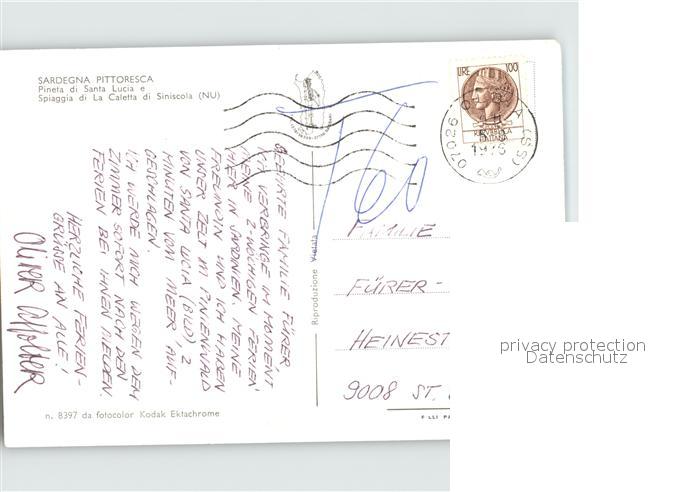 SARDEGNA PITTORESCA
Pineta di Santa Lucia e
Spiaggia di La Caletta di Siniscola (NU)
LIRE 100
REPUBBLICA
ITALIANA
07026 O
A (SS)
1976
T 60
GEEHRTE FAMILIE FÜRER,
ICH VERBRINGE IM MOMENT
MEINE 2-WÖCHIGEN FERIEN
HIER IN SARDINIEN. MEINE
FREUNDIN UND ICH HABEN
UNSER ZELT IM PINIENWALD
VON SANTA LUCIA (BILD) 2
MINUTEN VOM MEER, AUF-
GESCHLAGEN.
ICH WERDE MICH WEGEN DEM
ZIMMER SOFORT NACH DEN
FERIEN BEI IHNEN MELDEN.
HERZLICHE FERIEN-
GRÜSSE AN ALLE!
OLIVER
Riproduzione Vietata
FAMILIE
FÜRER-
HEINEST
9008 ST.
n. 8397 da fotocolor Kodak Ektachrome
privacy protection
Datenschutz